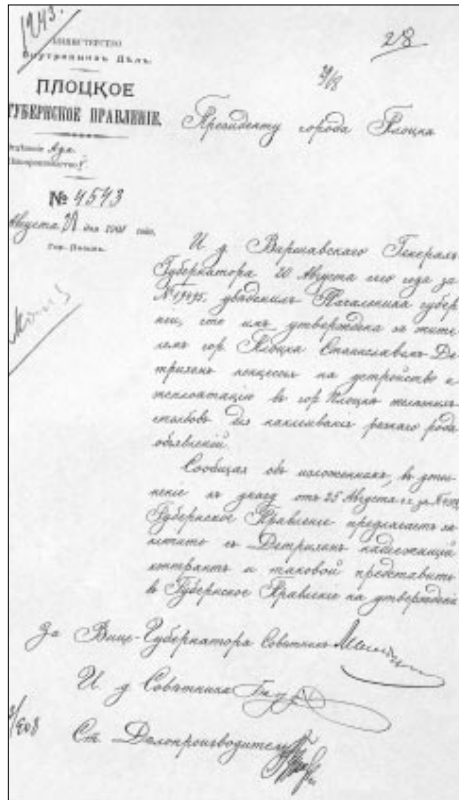 1243.
28
МИНИСТЕРСТВО
Внутреннихъ Дѣлъ.
ПЛОЦКОЕ
ГУБЕРНСКОЕ ПРАВЛЕНІЕ.
Президенту города Плоцка
№ 4543
Августа дня года,
Гор. Плоцкъ.
И. д. Варшавскаго Генералъ
Губернатора 20 Августа сего года за
№ уведомилъ Начальника губер
ніи, что имъ утверждена за жите
лемъ гор. Плоцка Станиславомъ Де
трихомъ концессія на устройство и
эксплоатацію въ гор. Плоцкѣ
столбовъ для наклеиванія рода
объявленій.
Сообщая объ изложенномъ, въ допол
неніе къ указу отъ 25 Августа с.г. за №
Губернское Правленіе предлагаетъ за
ключить съ Детрихомъ надлежащій
контрактъ и таковой представить
въ Губернское Правленіе на утвержденіе
За Вице-Губернатора Совѣтникъ
И. д. Совѣтника
Ст. Дѣлопроизводитель